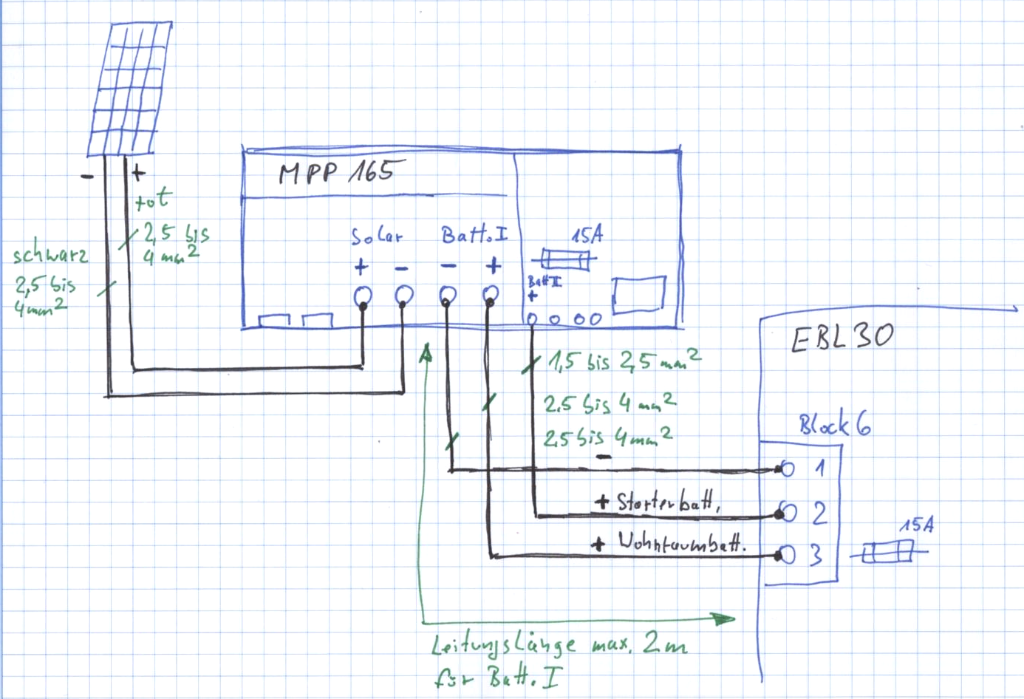 MPP 165
- +
rot
2,5 bis
4 mm²
schwarz
2,5 bis
4mm²
Solar Batt. I
+ - - +
15A
Batt II
+
EBL 30
1,5 bis 2,5 mm²
2,5 bis 4 mm²
2,5 bis 4 mm²
Block 6
- 1
+ Starterbatt. 2
+ Wohnraumbatt. 3
15A
Leitungslänge max. 2m
für Batt. I